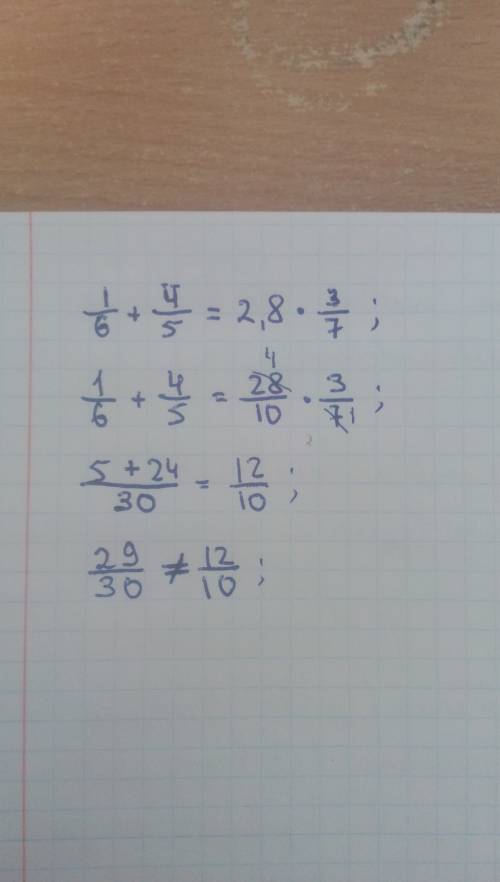 1/6 + 4/5 = 2,8 · 3/7 ;
1/6 + 4/5 = 28 4/10 · 3/7 1 ;
5 + 24/30 = 12/10 ;
29/30 ≠ 12/10 ;